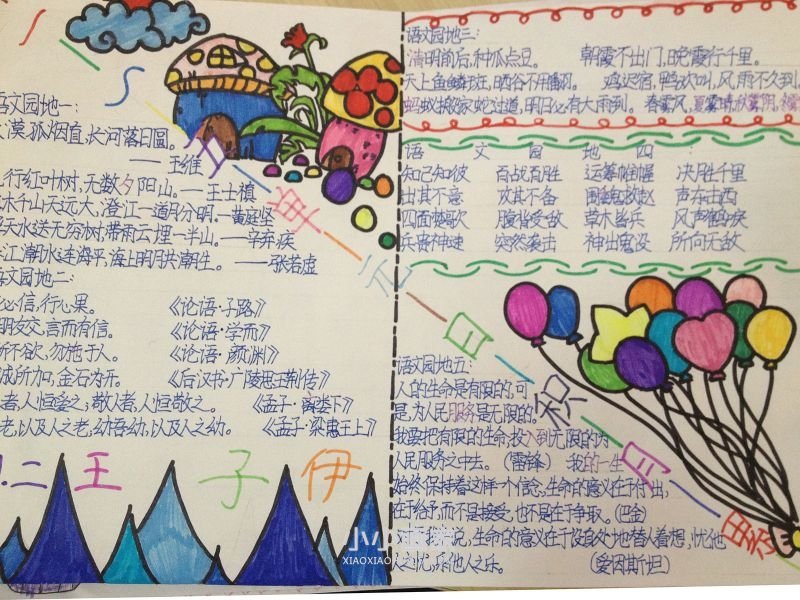 语文园地一:
大漠孤烟直,长河落日圆。
——王维
行行红叶树,无数夕阳山。——王士禛
木千山天远大,澄江一道月分明。——黄庭坚
天水送无穷树,带雨云埋一半山。——辛弃疾
江潮水连海平,海上明月共潮生。——张若虚
语文园地二:
必信,行必果。《论语·子路》
朋友交,言而有信。《论语·学而》
所不欲,勿施于人。《论语·颜渊》
诚所加,金石为开。《后汉书·广陵思王荆传》
者,人恒爱之;敬人者,人恒敬之。《孟子·离娄下》
老,以及人之老,幼吾幼,以及人之幼。《孟子·梁惠王上》
二 王 子 伊
语文园地三:
清明前后,种瓜点豆。 朝霞不出门,晚霞行千里。
天上鱼鳞斑,晒谷不用翻。 鸡迟宿,鸭欢叫,风雨不久到
蚂蚁搬家蛇过道,明日必有大雨到。 春雾风,夏雾晴,秋雾阴,
语文园地四:
知己知彼 百战百胜 运筹帷幄 决胜千里
出其不意 攻其不备 围魏救赵 声东击西
四面楚歌 腹背受敌 草木皆兵 风声鹤唳
兵贵神速 突然袭击 神出鬼没 所向无敌
语文园地五:
人的生命是有限的,可
是,为人民服务是无限的,
我要把有限的生命,投入到无限的为
人民服务之中去。(雷锋) 我的一生
始终保持着这样一个信念,生命的意义在于付出,
在于给予,而不是接受,也不是在于争取。(巴金)
于我来说,生命的意义在于设身处地替人着想,忧他
人之忧,乐他人之乐。 (爱因斯坦)
单 元 日 积 月 累
XIAOXIAO